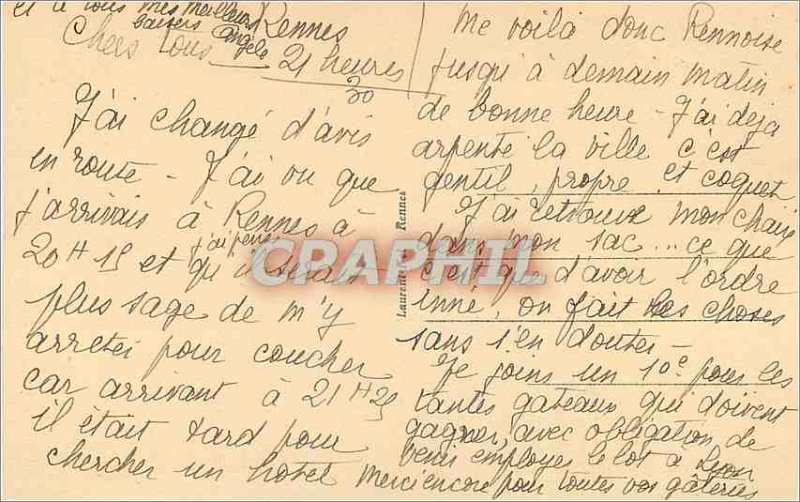 et à tous mes meilleurs
baisers Angèle
Rennes
Chers tous 21 heures
30
J'ai changé d'avis
en route - J'ai vu que
j'arrivais à Rennes à
20H 15 et j'ai pensé qu'il serait
plus sage de m'y
arreter pour coucher
car arrivant à 21H25
il était tard pour
chercher un hôtel
Me voilà donc Rennoise
jusqu'à demain matin
de bonne heure - J'ai deja
arpenté la ville c'est
gentil, propre et coquet
J'ai retrouvé mon
dans mon sac... ce que
c'est que d'avoir l'ordre
inné, on fait les choses
sans s'en douter -
Je joins un 10e pour les
tantes gateaux qui doivent
gagner, avec obligation de
venir employer le lot à Lyon
Merci encore pour toutes vos gâteries
Laurent Rennes
CPAPHIL